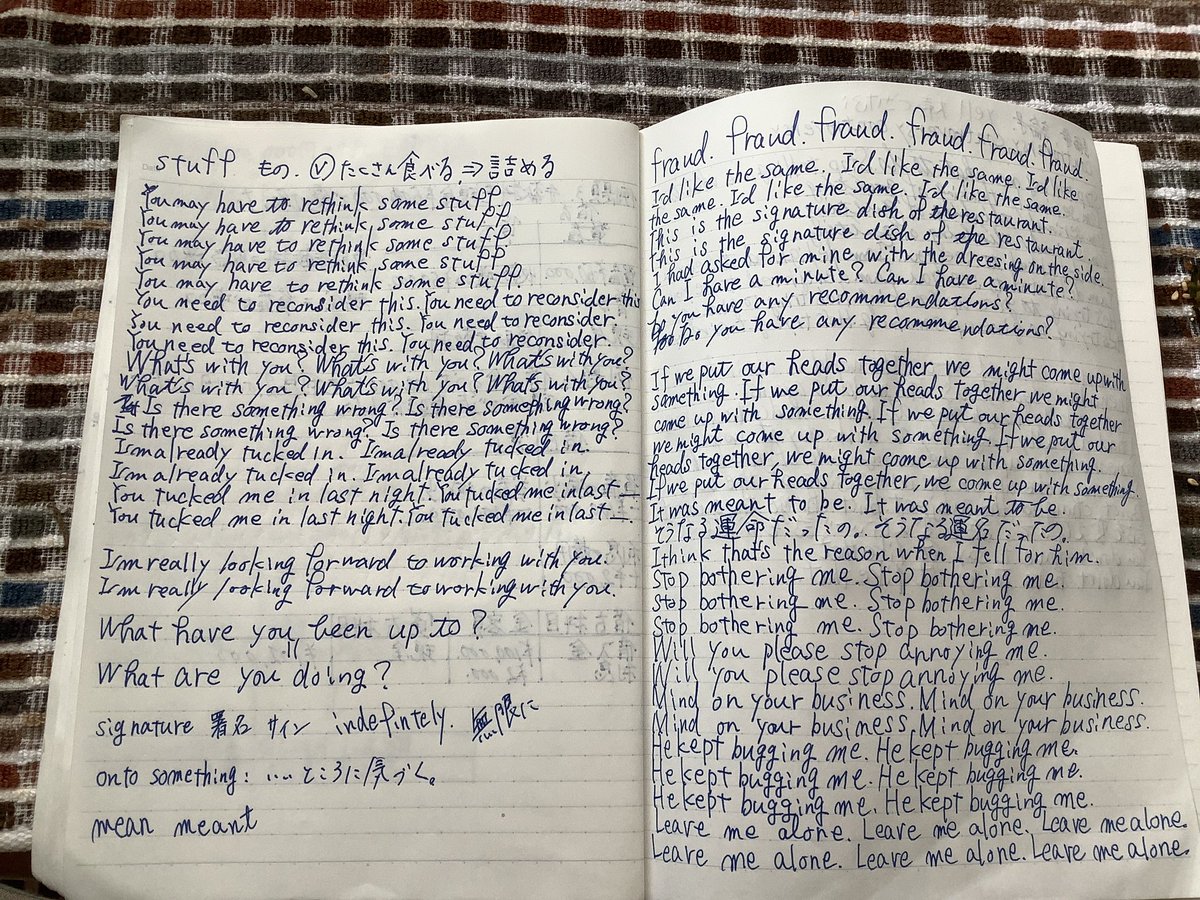 stuff もの. Ⓥたくさん食べる ⇒ 詰める
You may have to rethink some stuff
You may have to rethink some stuff
You may have to rethink some stuff
You may have to rethink some stuff
You may have to rethink some stuff.
You need to reconsider this. You need to reconsider this
You need to reconsider this. You need to reconsider.
You need to reconsider this. You need to reconsider.
What's with you? What's with you? What's with you?
What's with you? What's with you? What's with you?
Is there something wrong? Is there something wrong?
Is there something wrong? Is there something wrong?
I'm already tucked in. I'm already tucked in.
I'm already tucked in. I'm already tucked in.
You tucked me in last night. You tucked me in last —
You tucked me in last night. You tucked me in last —.
I'm really looking forward to working with you.
I'm really looking forward to working with you.
What have you been up to?
What are you doing?
signature 署名 サイン indefintely. 無限に
onto something: ‥‥ところに気づく。
mean meant
fraud. fraud. fraud. fraud. fraud. fraud.
I'd like the same. I'd like the same. I'd like
the same. I'd like the same. I'd like the same.
This is the signature dish of the restaurant.
This is the signature dish of the restaurant.
I had asked for mine with the dreesing on the side.
Can I have a minute? Can I have a minute?
you have any recommendations?
Do you have any recommendations?
If we put our heads together we might come up with
something. If we put our heads together we might
come up with something. If we put our heads together
we might come up with something. If we put our
heads together, we might come up with something.
If we put our heads together, we come up with something.
It was meant to be. It was meant to be.
そうなる運命だったの. そうなる運名だったの。
I think that's the reason when I fell for him.
Stop bothering me. Stop bothering me.
Stop bothering me. Stop bothering me.
Stop bothering me. Stop bothering me.
Will you please stop annoying me.
Will you please stop annoying me.
Mind on your business. Mind on your business.
Mind on your business. Mind on your business.
He kept bugging me. He kept bugging me.
He kept bugging me. He kept bugging me.
He kept bugging me. He kept bugging me.
Leave me alone. Leave me alone. Leave me alone.
Leave me alone. Leave me alone. Leave me alone.